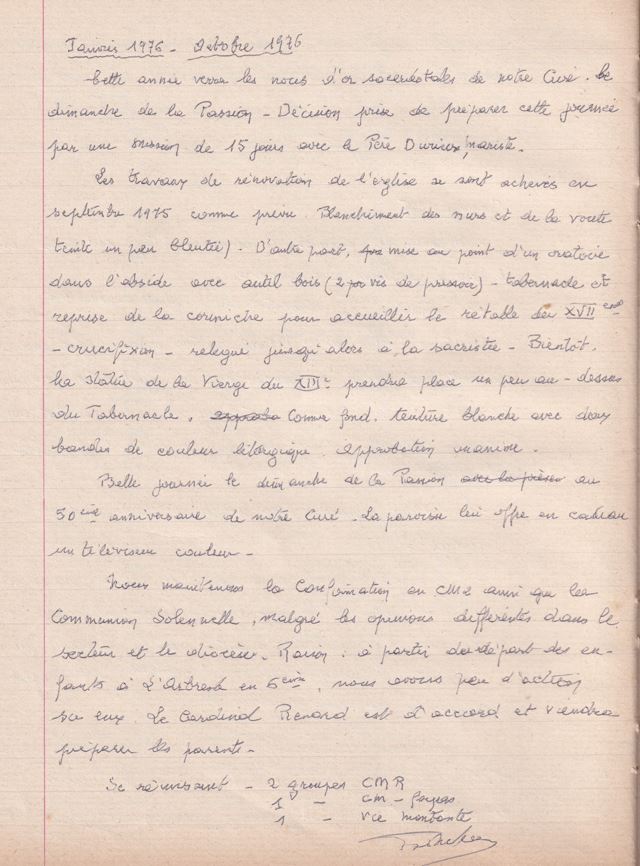 Janvier 1976 - Octobre 1976
Cette année verra les noces d'or sacerdotales de notre Curé. le
dimanche de la Passion - Décision prise de préparer cette journée
par une mission de 15 jours avec le Père Durieux, mariste.
Les travaux de rénovation de l'église se sont achevés en
septembre 1975 comme prévu. Blanchiment des murs et de la voute
(teinte un peu bleutée) - D'autre part, mise au point d'un oratoire
dans l'abside avec autel bois (2 vis de pressoir) - tabernacle et
reprise de la corniche pour accueillir le rétable du XVII
- crucifixion - relegué jusqu'alors à la sacristie - Bientôt.
la statue de la Vierge du prendra place un peu au-dessus
du Tabernacle. Comme fond. tenture blanche avec deux
bandes de couleur liturgique. Approbation unanime.
Belle journée le dimanche de la Passion avec la prière au
50ème anniversaire de notre Curé - La paroisse lui offre en cadeau
un téléviseur couleur -
Nous maintenons la Confirmation en CM2 ainsi que la
Communion Solennelle, malgré les opinions différentes dans le
secteur et le diocèse. Raison : à partir du départ des en-
fants à L'Arbresle en 6ème, nous avons peu d'action
sur eux. Le Cardinal Renard est d'accord et viendra
préparer les parents -
Se réunissent - 2 groupes CMR
1 - CM -
1 - vie montante